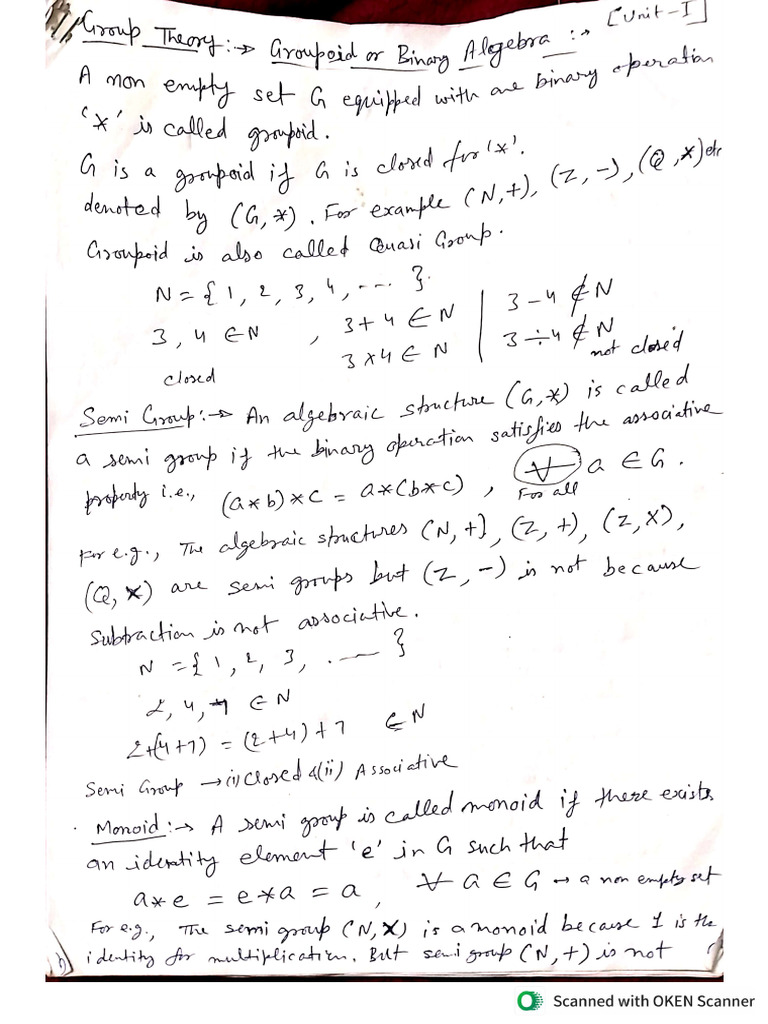 Group Theory:→ Groupoid or Binary Algebra :→ [Unit-I]
A non empty set G equipped with one binary operation
'*' is called groupoid.
G is a groupoid if G is closed for '*'.
denoted by (G,*). For example (N,+), (Z,-), (Q,×) etc
Groupoid is also called Quasi Group.
N={1, 2, 3, 4, .... }.
3, 4 ∈N , 3+4 ∈ N | 3-4 ∉ N
3×4 ∈ N | 3÷4 ∉ N
closed not closed
Semi Group:→ An algebraic structure (G,*) is called
a semi group if the binary operation satisfies the associative
property i.e., (a*b)*c = a*(b*c) , ∀ a ∈ G.
For all
For e.g., The algebraic structures (N,+], (Z,+), (Z,X),
(Q,×) are semi groups but (Z,-) is not because
subtraction is not associative.
N={1, 2, 3, .... }
2, 4, 7 ∈ N
2+(4+7) = (2+4)+7 ∈ N
Semi Group → (i) Closed &(ii) Associative
Monoid:→ A semi group is called monoid if there exists
an identity element 'e' in G such that
a*e = e*a = a, ∀ a ∈ G → a non empty set
For e.g., The semi group (N,X) is a monoid because 1 is the
identity for multiplication. But semi group (N,+) is not
Scanned with OKEN Scanner